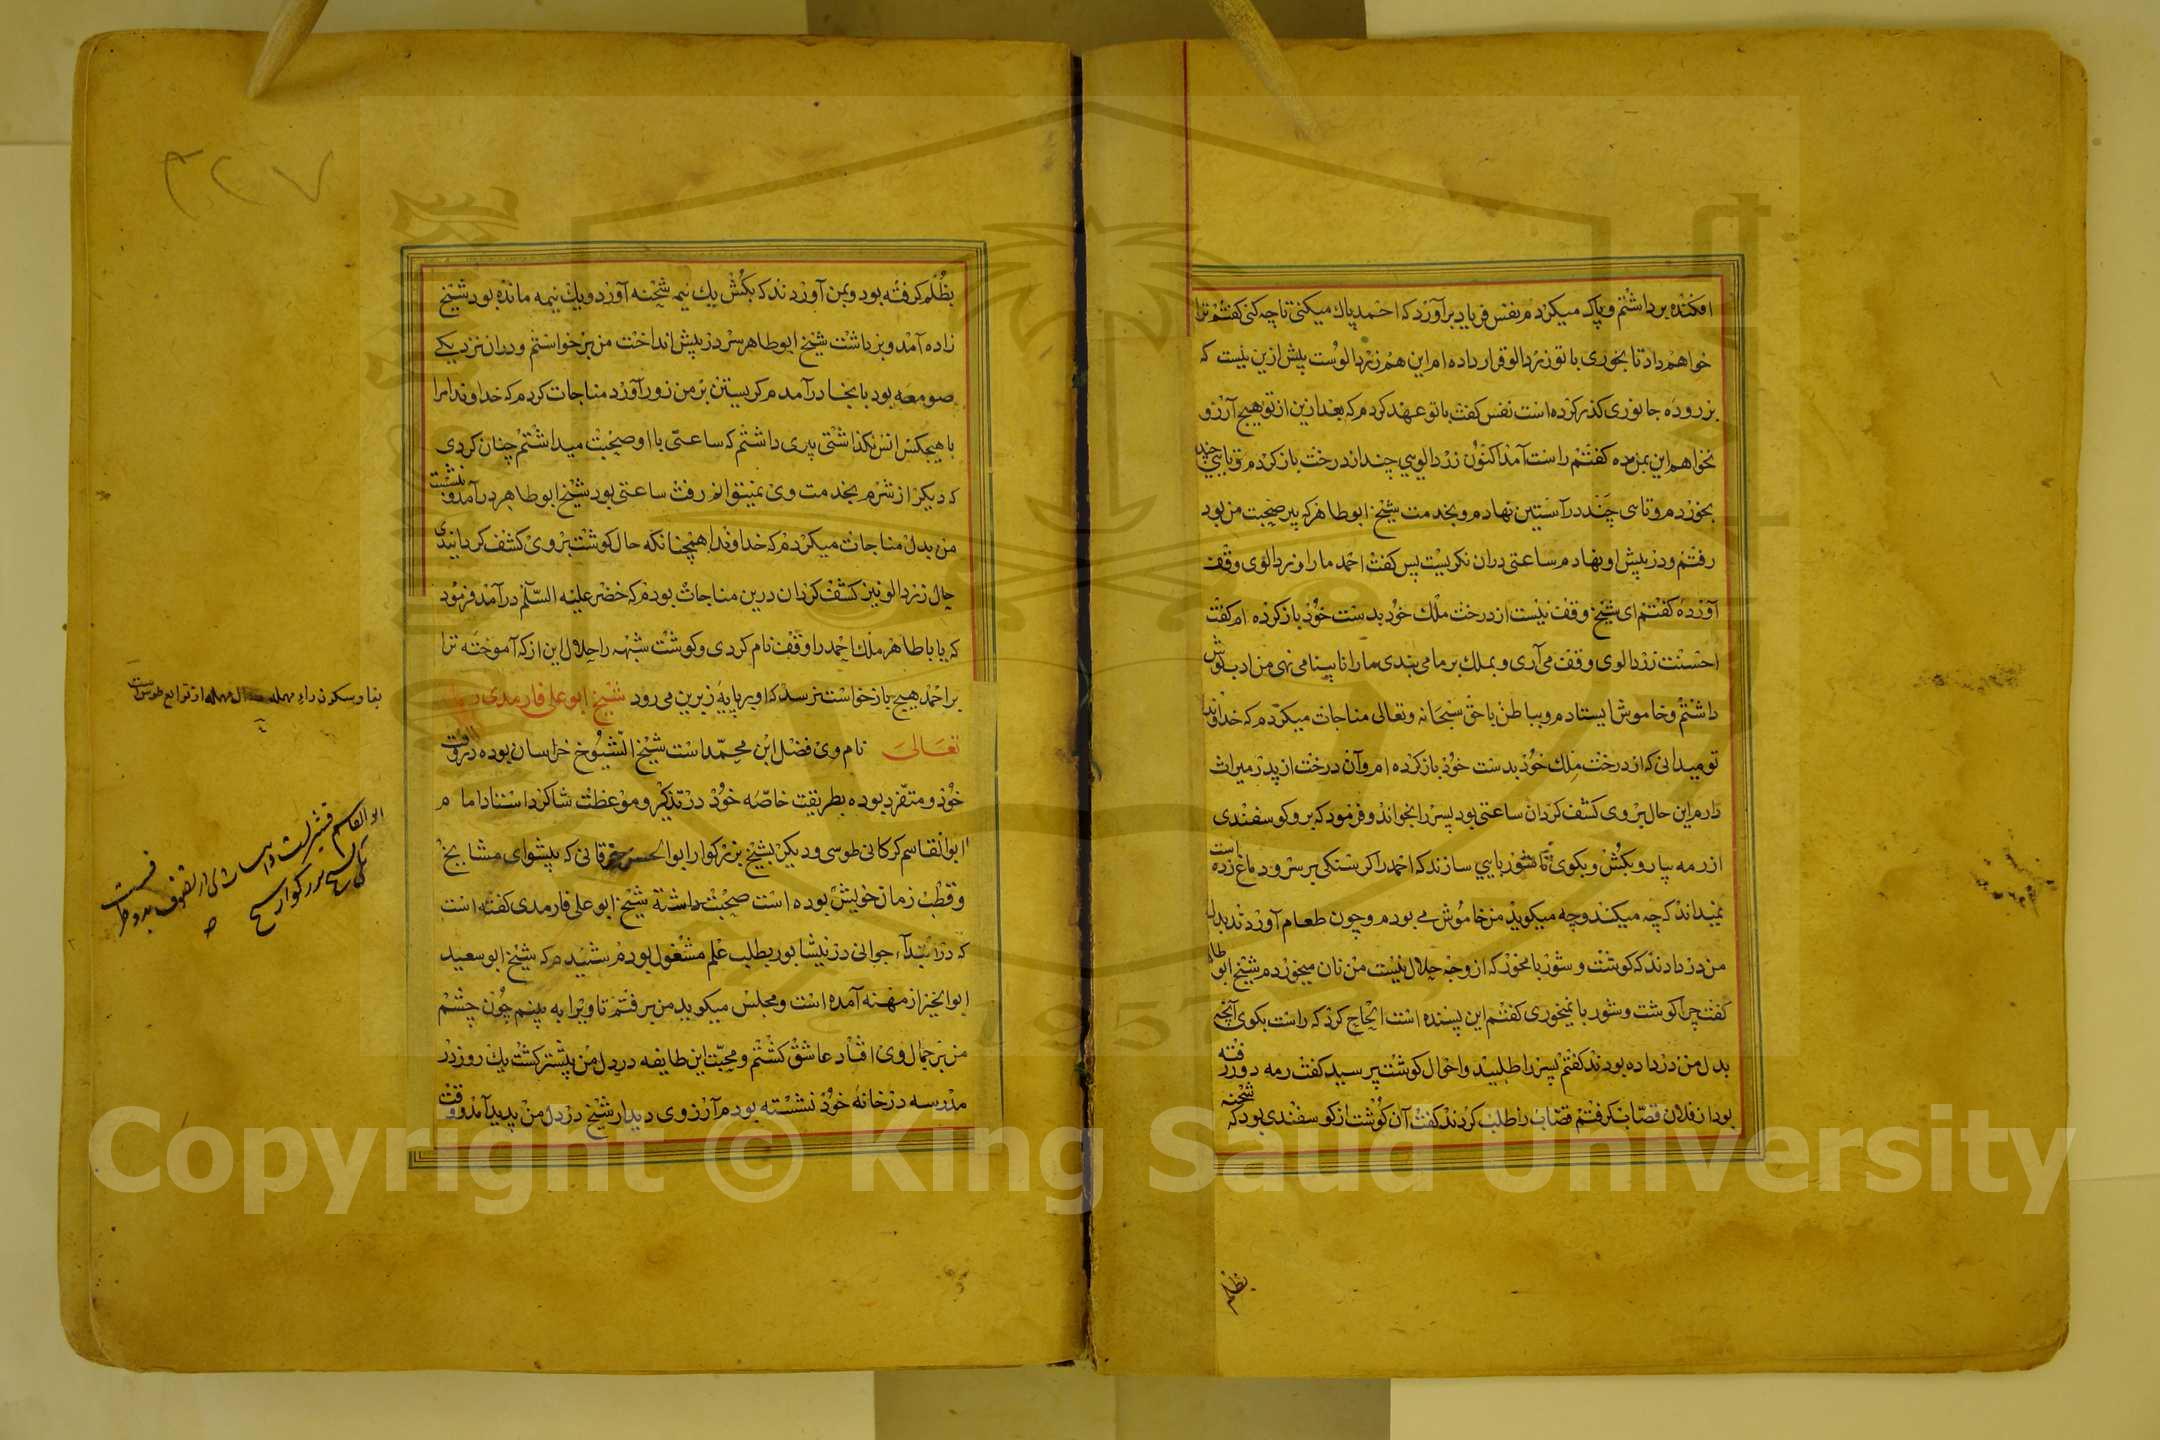 افکنده برداشتم و پاک میکردم نفس فریاد برآورد که احمد پاک میکنی تا چه کنی کفتم ترا
خواهم داد تا بخوری با تو زردالو قرار داده ام این هم زردالوست پیش ازین نیست که
بر روده جانوری کذر کرده است نفس کفت با تو عهد کردم که بعد ازین از تو هیچ آرزو
نخواهم این بمن مده کفتم راست آمد اکنون زردالویی چند از درخت باز کردم و تایی چند
بخوردم و تایی چند در آستین نهادم و بخدمت شیخ ابوطاهر که پیر صحبت من بود
رفتم و در پیش او نهادم ساعتی دران نکریست پس کفت احمد ما را زردالوی وقف
آورده کفتم ای شیخ وقف نیست از درخت ملک خود بدست خود باز کرده ام کفت
احسنت زردالوی وقف می آری و بملک بر ما می بندی ما را نابینا می نهی من ادب کوش
داشتم و خاموش ایستادم و بباطن با حق سبحانه وتعالی مناجات میکردم که خداوندا
تو میدانی که از درخت ملک خود بدست خود باز کرده ام وآن درخت از پدر میراث
دارم این حال بر وی کشف کردان ساعتی بود پسر را بخواند و فرمود که برو کوسفندی
از رمه بیار و بکش و بکوی تا شوربایی سازند که احمد را کرسنکی بر سر و دماغ زده است
نمیداند که چه میکند و چه میکوید من خاموش می بودم و چون طعام آوردند بدل
من در دادند که کوشت و شوربا مخور که از وجه حلال نیست من نان میخوردم شیخ ابوطاهر
کفت چرا کوشت و شوربا نمیخوری کفتم این پسنده است الحاح کرد که راست بکوی آنچه
بدل من در داده بودند کفتم پسر را طلبید و احوال کوشت پرسید کفت رمه دور رفته
بود از فلان قصاب کرفتم قصاب را طلب کردند کفت آن کوشت از کوسفندی بود که شحنه
بظلم
بظلم کرفته بود وبمن آوردند که بکش یک نیمه شحنه آورد ویک نیمه مانده بود شیخ
زاده آمد و برداشت شیخ ابوطاهر سر در پیش انداخت من برخواستم و دران نزدیکے
صومعه بود بانجا درآمدم کریستن بر من زور آورد مناجات کردم که خداوندا مرا
با هیچکس انس نکذاشتی پیری داشتم که ساعتی با او صحبت میداشتم چنان کردی
که دیکر از شرم بخدمت وی نمیتوانم رفت ساعتی بود شیخ ابوطاهر درآمد و بنشست
من بدل مناجات میکردم که خداوندا همچنانکه حال کوشت بر وی کشف کردانیدی
حال زردالو نیز کشف کردان درین مناجات بودم که خضر علیه السلام درآمد فرمود
که یا باطاهر ملک احمد را وقف نام کردی و کوشت شبهه را حلال این از که آموخته ترا
بر احمد هیچ بازخواست نرسد که او بر پایه زیرین می رود شیخ ابوعلی فارمدی رحمه الله
تعالی نام وی فضل ابن محمد است شیخ الشیوخ خراسان بوده در وقت
خود و متفرد بوده بطریقت خاصه خود در تذکیر و موعظت شاکرد استاد امام
ابوالقاسم کرکانی طوسی و دیکر بشیخ بزرکوار ابوالحسن خرقانی که پیشوای مشایخ
و قطب زمان خویش بوده است صحبت داشته شیخ ابوعلی فارمدی کفته است
که در ابتداء جوانی در نیشابور بطلب علم مشغول بودم شنیدم که شیخ ابوسعید
ابوالخیر از مهنه آمده است و مجلس میکوید من برفتم تا ویرا به بینم چون چشم
من بر جمال وی افتاد عاشق کشتم و محبت این طایفه در دل من بیشتر کشت یک روز در
مدرسه در خانه خود نشسته بودم آرزوی دیدار شیخ در دل من پدید آمد و وقت
بفا وسکون راء مهمله از توابع طوس است
٣٢٧
Copyright © King Saud University
1957